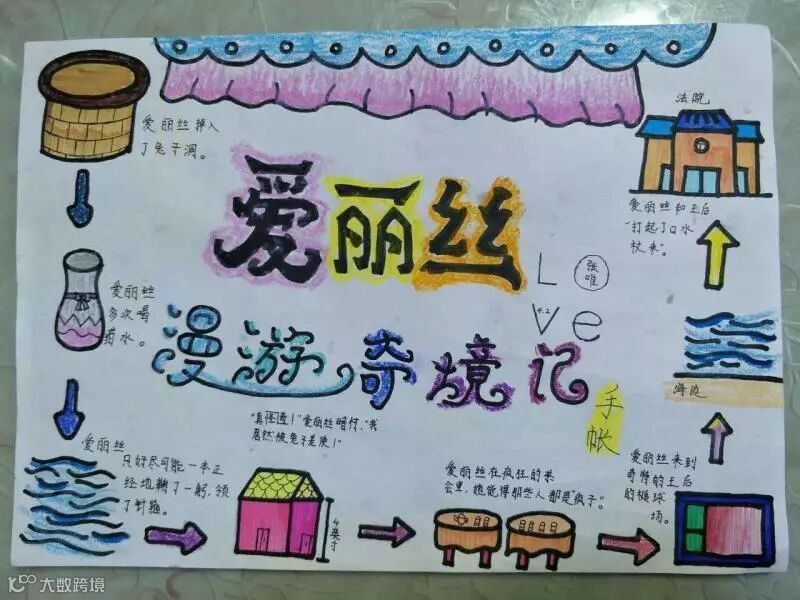 爱丽丝
漫游奇境记
手帐
L
ve
张唯
4.2
爱丽丝掉入
了兔子洞。
爱丽丝
多次喝
药水。
爱丽丝
只好尽可能一本正
经地鞠了一躬,领
了针箍。
"真怪道!"爱丽丝暗忖,"我
居然被兔子差使!"
4英寸
爱丽丝在疯狂的茶
会里,她觉得那些人都是疯子。
爱丽丝来到
奇特的王后
的槌球
场。
海边
爱丽丝和王后
"打起了口水
仗来"。
法院
大数跨境